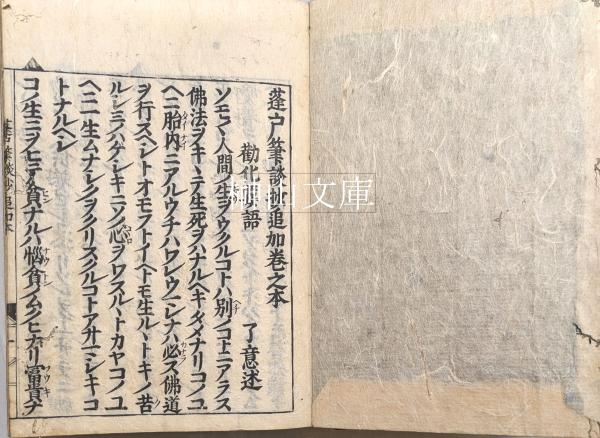 蓬戸筆談抄追加巻之本
勸化物語　了意述
ソモ〱人間ノ生ヲウクルコトハ別ノコトニアラス
佛法ヲキヽテ生死ヲハナルヘキタメナリコノユ
ヘニ胎内ニアルウチハワレウマレナハ必ス佛道
ヲ行スヘシトオモフトイヘトモ生ルヽトキノ苦
ルシミノハゲシキニソノ心ヲワスルヽトカヤコノユ
ヘニ一生ムナシクヲクリスクルコトアサマシキコ
トナルヘシ
コノ生ニヲヒテ貧ナルハ慳貪ノムクヒナリ冨貴ナ
桐山文庫